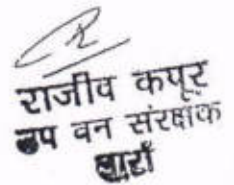 राजीव कपूर
उप वन संरक्षक
बारां